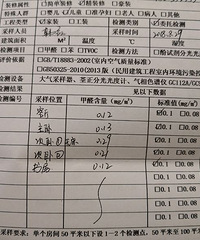 装修属性 □精装修 □简装修
特殊人群 □婴儿 □儿童 □准孕妇 □老人 □病人 □其他
工程类型 ☑家装 □工装 检测类别 ☑委托检测
采样人员 采样时间 2018.3.29
建筑面积 M² 温度 ℃ 湿度
检测项目 ☑甲醛 □苯 □TVOC 检测方法 □酚试剂分光光
评价依据 □GB/T18883-2002《室内空气质量标准》
□GB50325-2010(2013版《民用建筑工程室内环境污染控
检测设备 大气采样器、 分光光度计、气相色谱仪
检测结果 见以下数据
编号 采样位置 甲醛含量(mg/m³) 标准值(mg/m³)
客厅 0.12 ☑0.1 □0.08
主卧 0.13 ☑0.1 □0.08
次卧 0.29 ☑0.1 □0.08
次卧 0.21 ☑0.1 □0.08
书房 0.12 ☑0.1 □0.08
□0.1 □0.08
□0.1 □0.08
□0.1 □0.08
采样要求:单个房间50平米以下设1-2个检测点,50平米至100